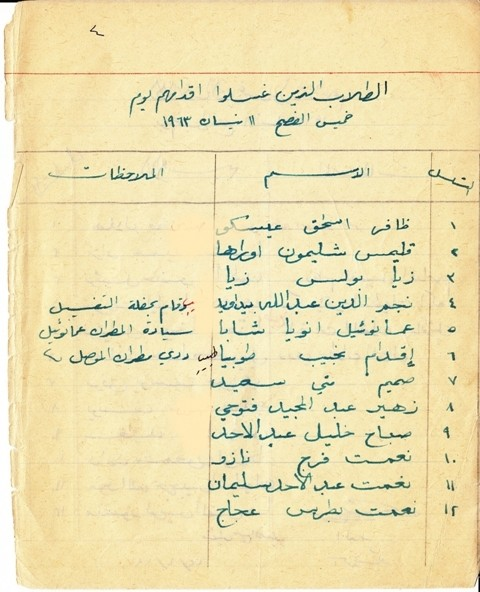 ٤
الطلاب الذين غسلوا اقدامهم يوم
خميس الفصح ١١ نيسان ١٩٦٣
التسلسل الاسم الملاحظات
١ ظافر اسحق عيسكو
٢ قليمس شليمون اوراها
٣ زيا بولس زيا
٤ نجم الدين عبدالله بيداويد وقام بحفلة التغسيل
٥ عمانوئيل انويا شابا سيادة المطران عمانوئيل
٦ إقدام نجيب طوبيا ددي مطران الموصل
٧ صميم متي سعيد
٨ زهير عبد المجيد فتوحي
٩ صباح خليل عبد الاحد
١٠ نعمت فرج نازو
١١ نعمت عبد الاحد سليمان
١٢ نعمت بطرس عجاج